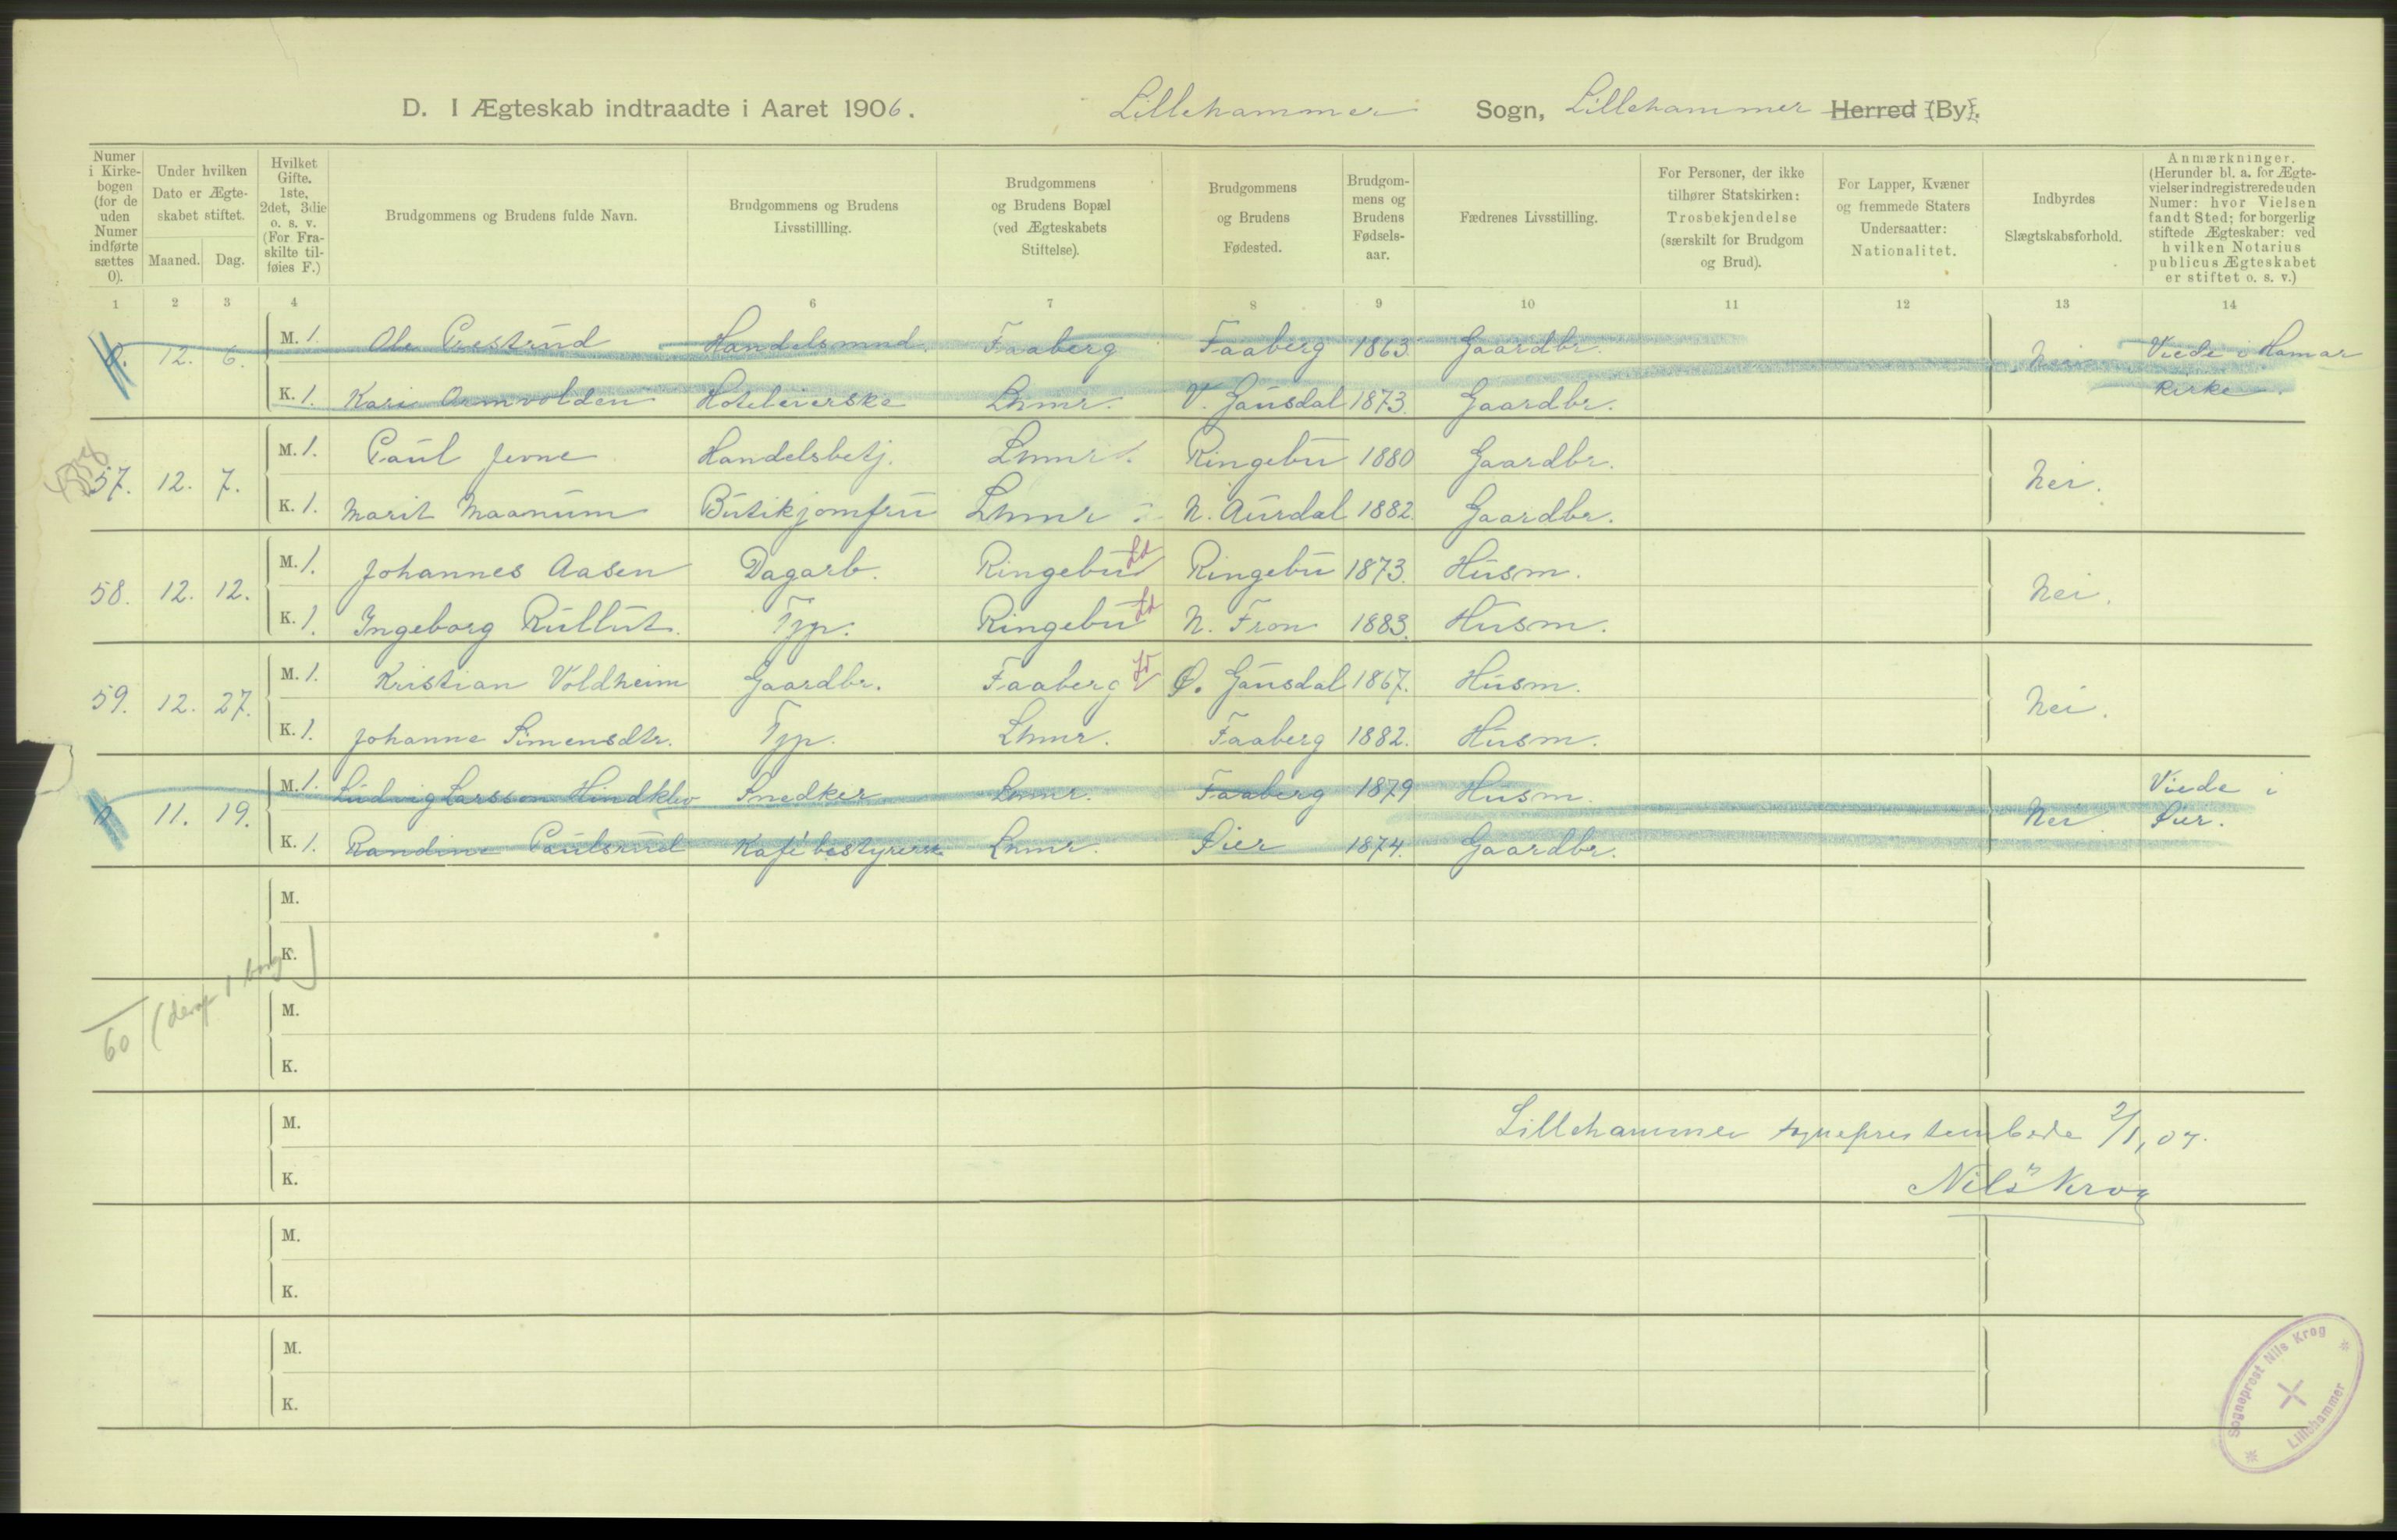 D. I Ægteskab indtraadte i Aaret 1906. Lillehammer Sogn, Lillehammer Herred (By).
Numer i Kirkebogen (for de uden Numer indførte sættes 0).
Under hvilken Dato er Ægteskabet stiftet.
Maaned. Dag.
Hvilket Gifte. 1ste, 2det, 3die o. s. v. (For Fraskilte tilføies F.)
Brudgommens og Brudens fulde Navn.
Brudgommens og Brudens Livsstillling.
Brudgommens og Brudens Bopæl (ved Ægteskabets Stiftelse).
Brudgommens og Brudens Fødested.
Brudgommens og Brudens Fødselsaar.
Fædrenes Livsstilling.
For Personer, der ikke tilhører Statskirken: Trosbekjendelse (særskilt for Brudgom og Brud).
For Lapper, Kvæner og fremmede Staters Undersaatter: Nationalitet.
Indbyrdes Slægtskabsforhold.
Anmærkninger. (Herunder bl. a. for Ægtevielser indregistrerede uden Numer: hvor Vielsen fandt Sted; for borgerlig stiftede Ægteskaber: ved hvilken Notarius publicus Ægteskabet er stiftet o. s. v.)
1 2 3 4 6 7 8 9 10 11 12 13 14
0. 12. 6. M. 1. Ole Prestrud Handelsmnd. Faaberg Faaberg 1863. Gaardbr. Nei Viede i Hamar
K. 1. Kari Ormvolden Hoteleierske Lhmr. V. Gausdal 1873. Gaardbr. kirke.
57. 12. 7. M. 1. Paul Jevne Handelsbetj. Lhmr. Ringebu 1880 Gaardbr. Nei.
K. 1. Marit Maanum Butikjomfru Lhmr. N. Aurdal 1882. Gaardbr.
58. 12. 12. M. 1. Johannes Aasen Dagarb. Ringebu Ld Ringebu 1873. Husm. Nei.
K. 1. Ingeborg Rullut. Tjp. Ringebu Ld N. Fron 1883. Husm.
59. 12. 27. M. 1. Kristian Voldheim Gaardbr. Faaberg Ø. Gausdal 1867. Husm. Nei.
K. 1. Johanne Simensdtr. Tjp. Lhmr. Faaberg 1882. Husm.
11. 19. M. 1. Ludvig Larssen Hindklev Snedker Lhmr. Faaberg 1879 Husm. Nei. Viede i
K. 1. Randine Paulsrud Kafébestyrerske Lhmr. Øier 1874. Gaardbr. Øier.
M.
K.
60 (deraf 1 borg)
M.
K.
M. Lillehammer sogneprestembede 2/1, 07.
K. Nils Krog
M.
K.
M.
K.
Sogneprest Nils Krog
Lillehammer